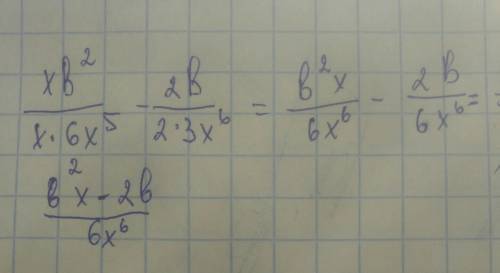 xв²/(x·6x⁵) - 2в/(2·3x⁶) = в²x/(6x⁶) - 2в/(6x⁶) =
(в²x - 2в)/(6x⁶)